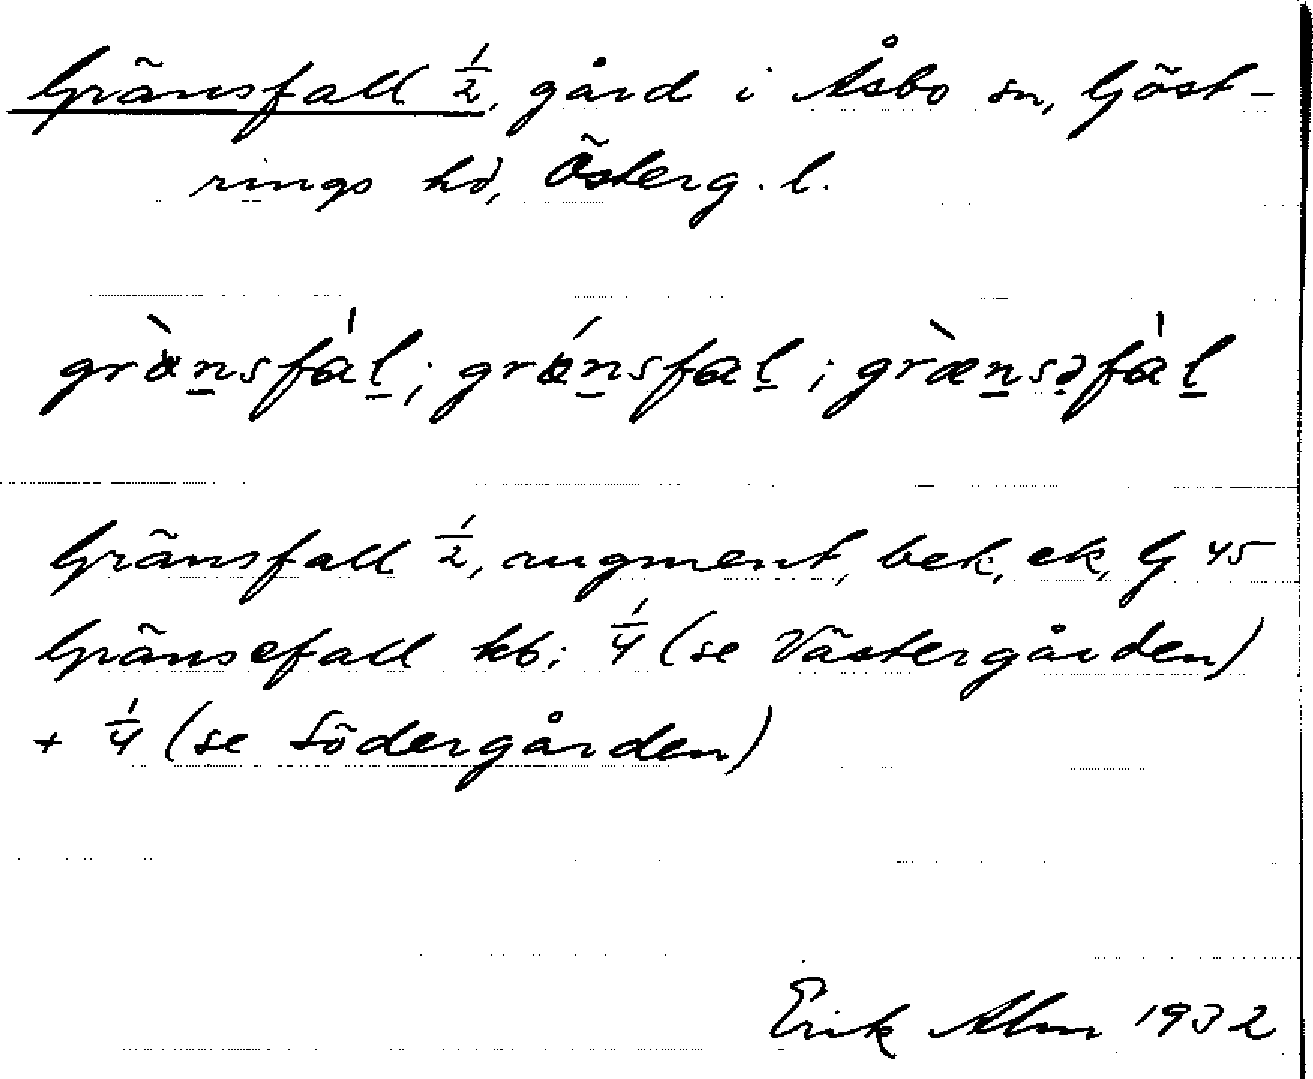 Gränsfall 1/2, gård i Åsbo sn, Göst-
rings hd, Österg. l.
grànsfa̍l; gránsfal; græ̀nsəfa̍l
Gränsfall 1/2, augment, bek, ek, G 45
Gränsefall kb; 1/4 (se Västergården)
+ 1/4 (se Södergården)
Erik Alm 1932